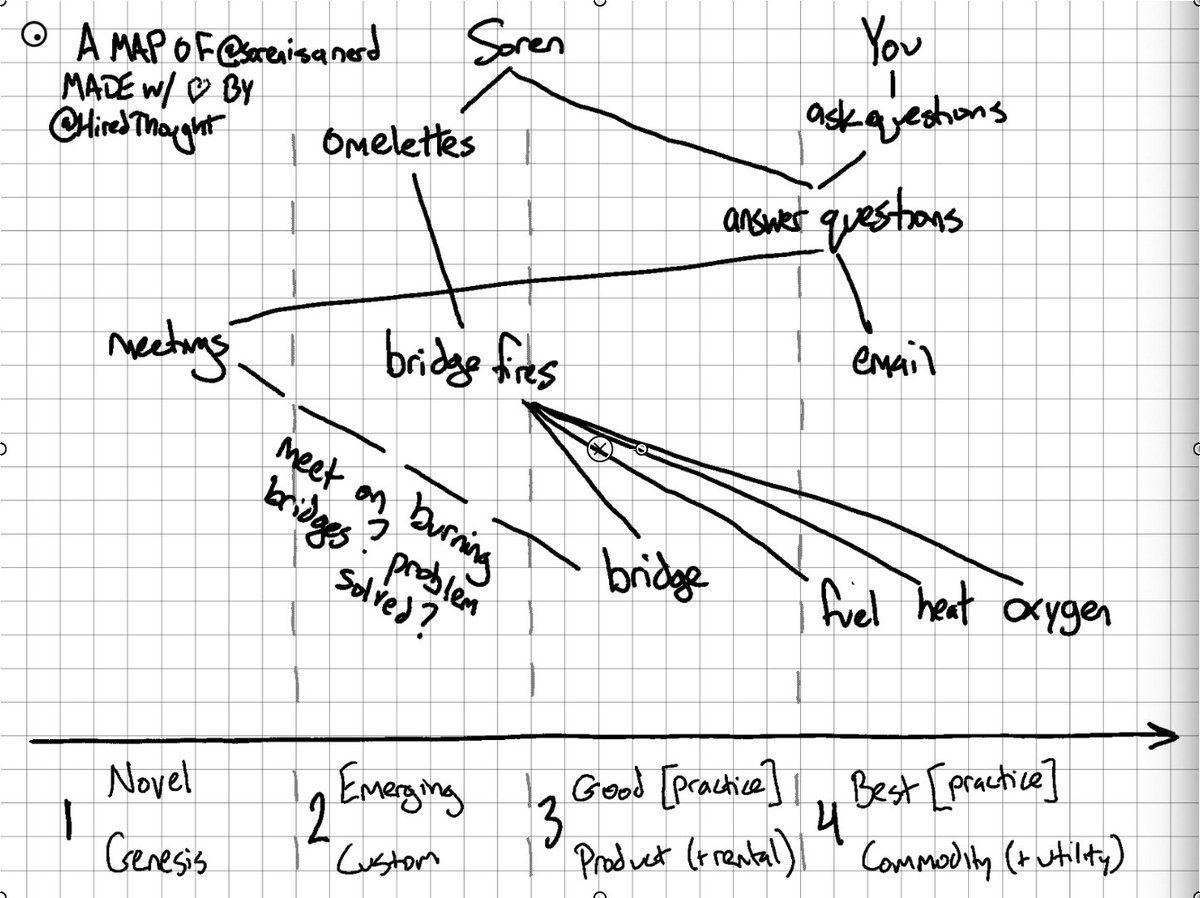 A MAP OF @sorenisanerd
MADE w/ ♡ BY
@HiredThought
Soren
You
ask questions
omelettes
answer questions
meetings
bridge fires
email
Meet on burning
bridges? problem
solved?
bridge
fuel heat oxygen
1 Novel
Genesis
2 Emerging
Custom
3 Good [practice]
Product (+rental)
4 Best [practice]
Commodity (+utility)